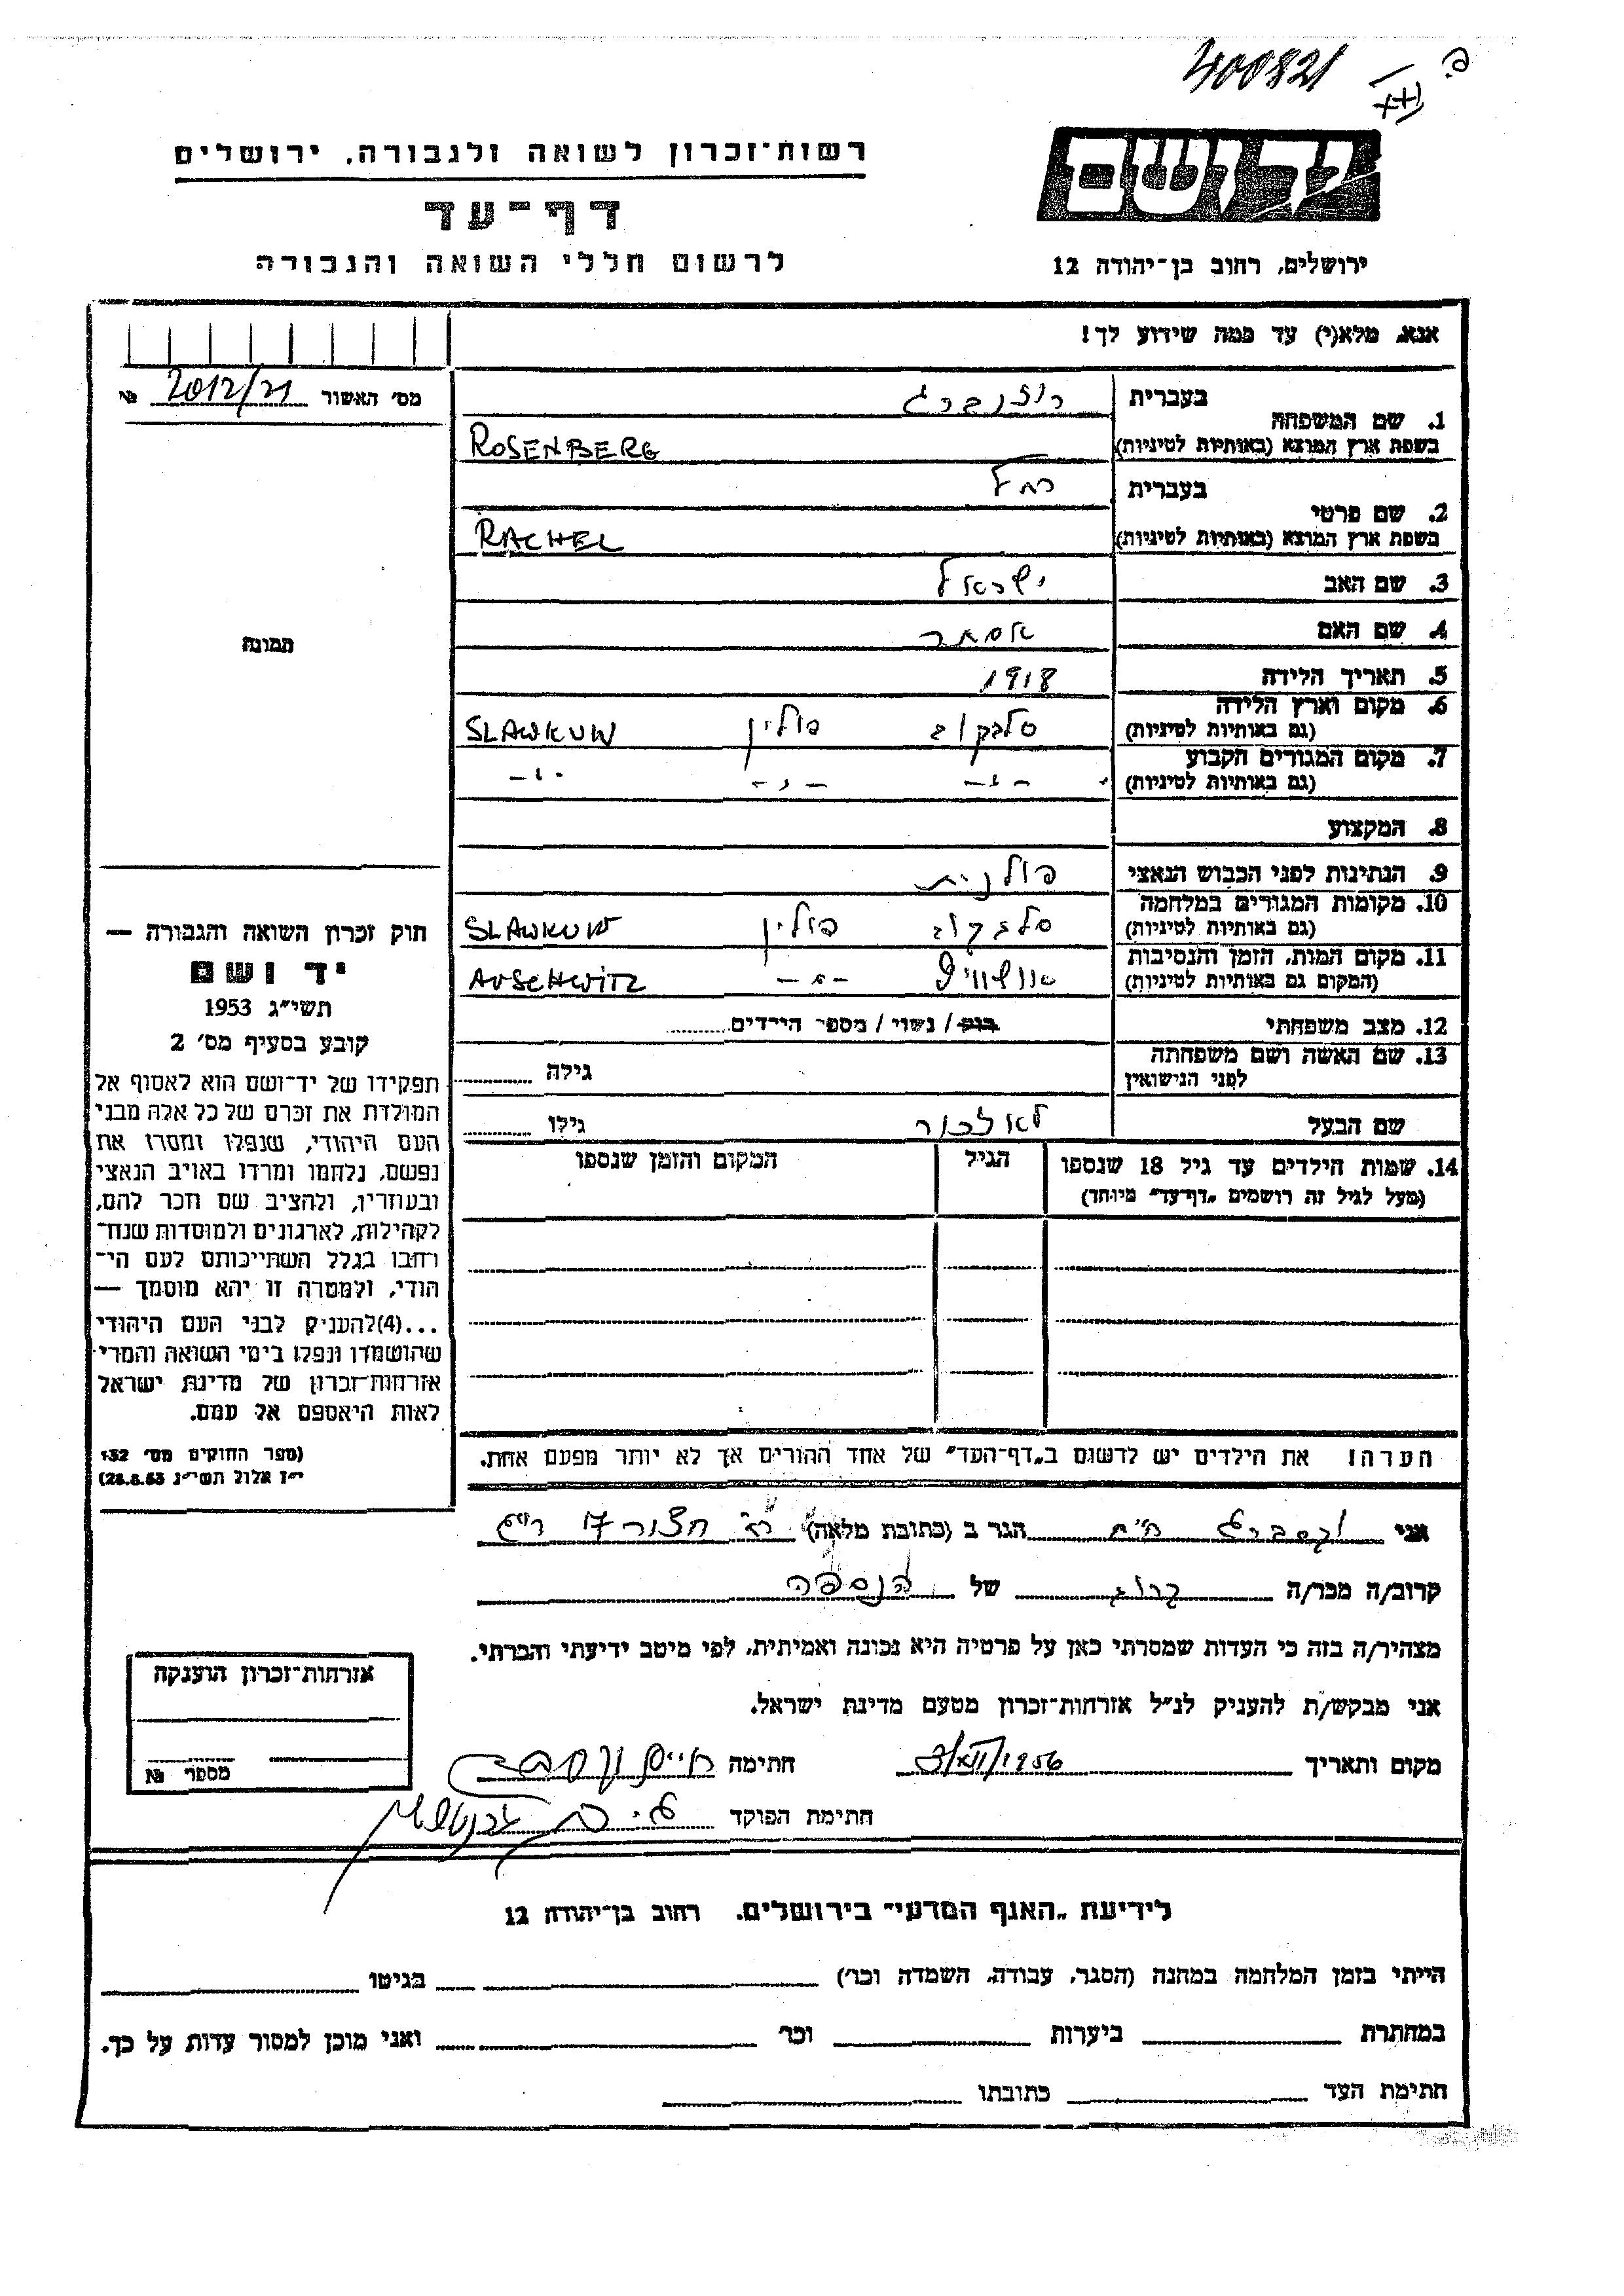 400821
רשות־זכרון לשואה ולגבורה, ירושלים
יד ושם
דף־עד
לרשום חללי השואה והגבורה
ירושלים, רחוב בן־יהודה 12
אנא, מלא(י) עד כמה שידוע לך!
מס' האשור 2012/21 №
בעברית רוזנברג
1. שם המשפחה
בשפת ארץ המוצא (באותיות לטיניות) ROSENBERG
בעברית רחל
2. שם פרטי
בשפת ארץ המוצא (באותיות לטיניות) RACHEL
3. שם האב ישראל
4. שם האם אסתר
תמונה
5. תאריך הלידה 1918
6. מקום וארץ הלידה
(גם באותיות לטיניות) סלבקוב פולין SLAWKUW
7. מקום המגורים הקבוע
(גם באותיות לטיניות) -"- -"- -"-
8. המקצוע
9. הנתינות לפני הכבוש הנאצי פולנית
10. מקומות המגורים במלחמה
(גם באותיות לטיניות) סלבקוב פולין SLAWKUW
11. מקום המות, הזמן והנסיבות
(המקום גם באותיות לטיניות) אושוויץ -"- AUSCHWITZ
12. מצב משפחתי רווק / נשוי / מספר הילדים
13. שם האשה ושם משפחתה
לפני הנישואין גילה
שם הבעל גילו
14. שמות הילדים עד גיל 18 שנספו הגיל המקום והזמן שנספו
(מעל לגיל זה רושמים „דף־עד" מיוחד)
הערה! את הילדים יש לרשום ב„דף־העד" של אחד ההורים אך לא יותר מפעם אחת.
חוק זכרון השואה והגבורה —
יד ושם
תשי"ג 1953
קובע בסעיף מס' 2
תפקידו של יד־ושם הוא לאסוף אל
המולדת את זכרם של כל אלה מבני
העם היהודי, שנפלו ומסרו את
נפשם, נלחמו ומרדו באויב הנאצי
ובעוזריו, ולהציב שם וזכר להם,
לקהילות, לארגונים ולמוסדות שנח־
רבו בגלל השתייכותם לעם הי־
הודי, ולמטרה זו יהא מוסמך —
...(4)להעניק לבני העם היהודי
שהושמדו ונפלו בימי השואה והמרי
אזרחות־זכרון של מדינת ישראל
לאות היאספם אל עמם.
(ספר החוקים מס' 132
י"ז אלול תשי"ג 28.8.53)
אני וקסברג חיים הגר ב (כתובת מלאה) רח' חצור 17 ר"ג
קרוב/ה מכר/ה קרוב של הנספה
מצהיר/ה בזה כי העדות שמסרתי כאן על פרטיה היא נכונה ואמיתית, לפי מיטב ידיעתי והכרתי.
אני מבקש/ת להעניק לנ"ל אזרחות־זכרון מטעם מדינת ישראל.
מקום ותאריך חתימה
חתימת הפוקד
אזרחות־זכרון הוענקה
מספר №
לידיעת „האגף המדעי" בירושלים, רחוב בן־יהודה 12
הייתי בזמן המלחמה במחנה (הסגר, עבודה, השמדה וכו') בגיטו
במחתרת ביערות וכו' ואני מוכן למסור עדות על כך.
חתימת העד כתובתו